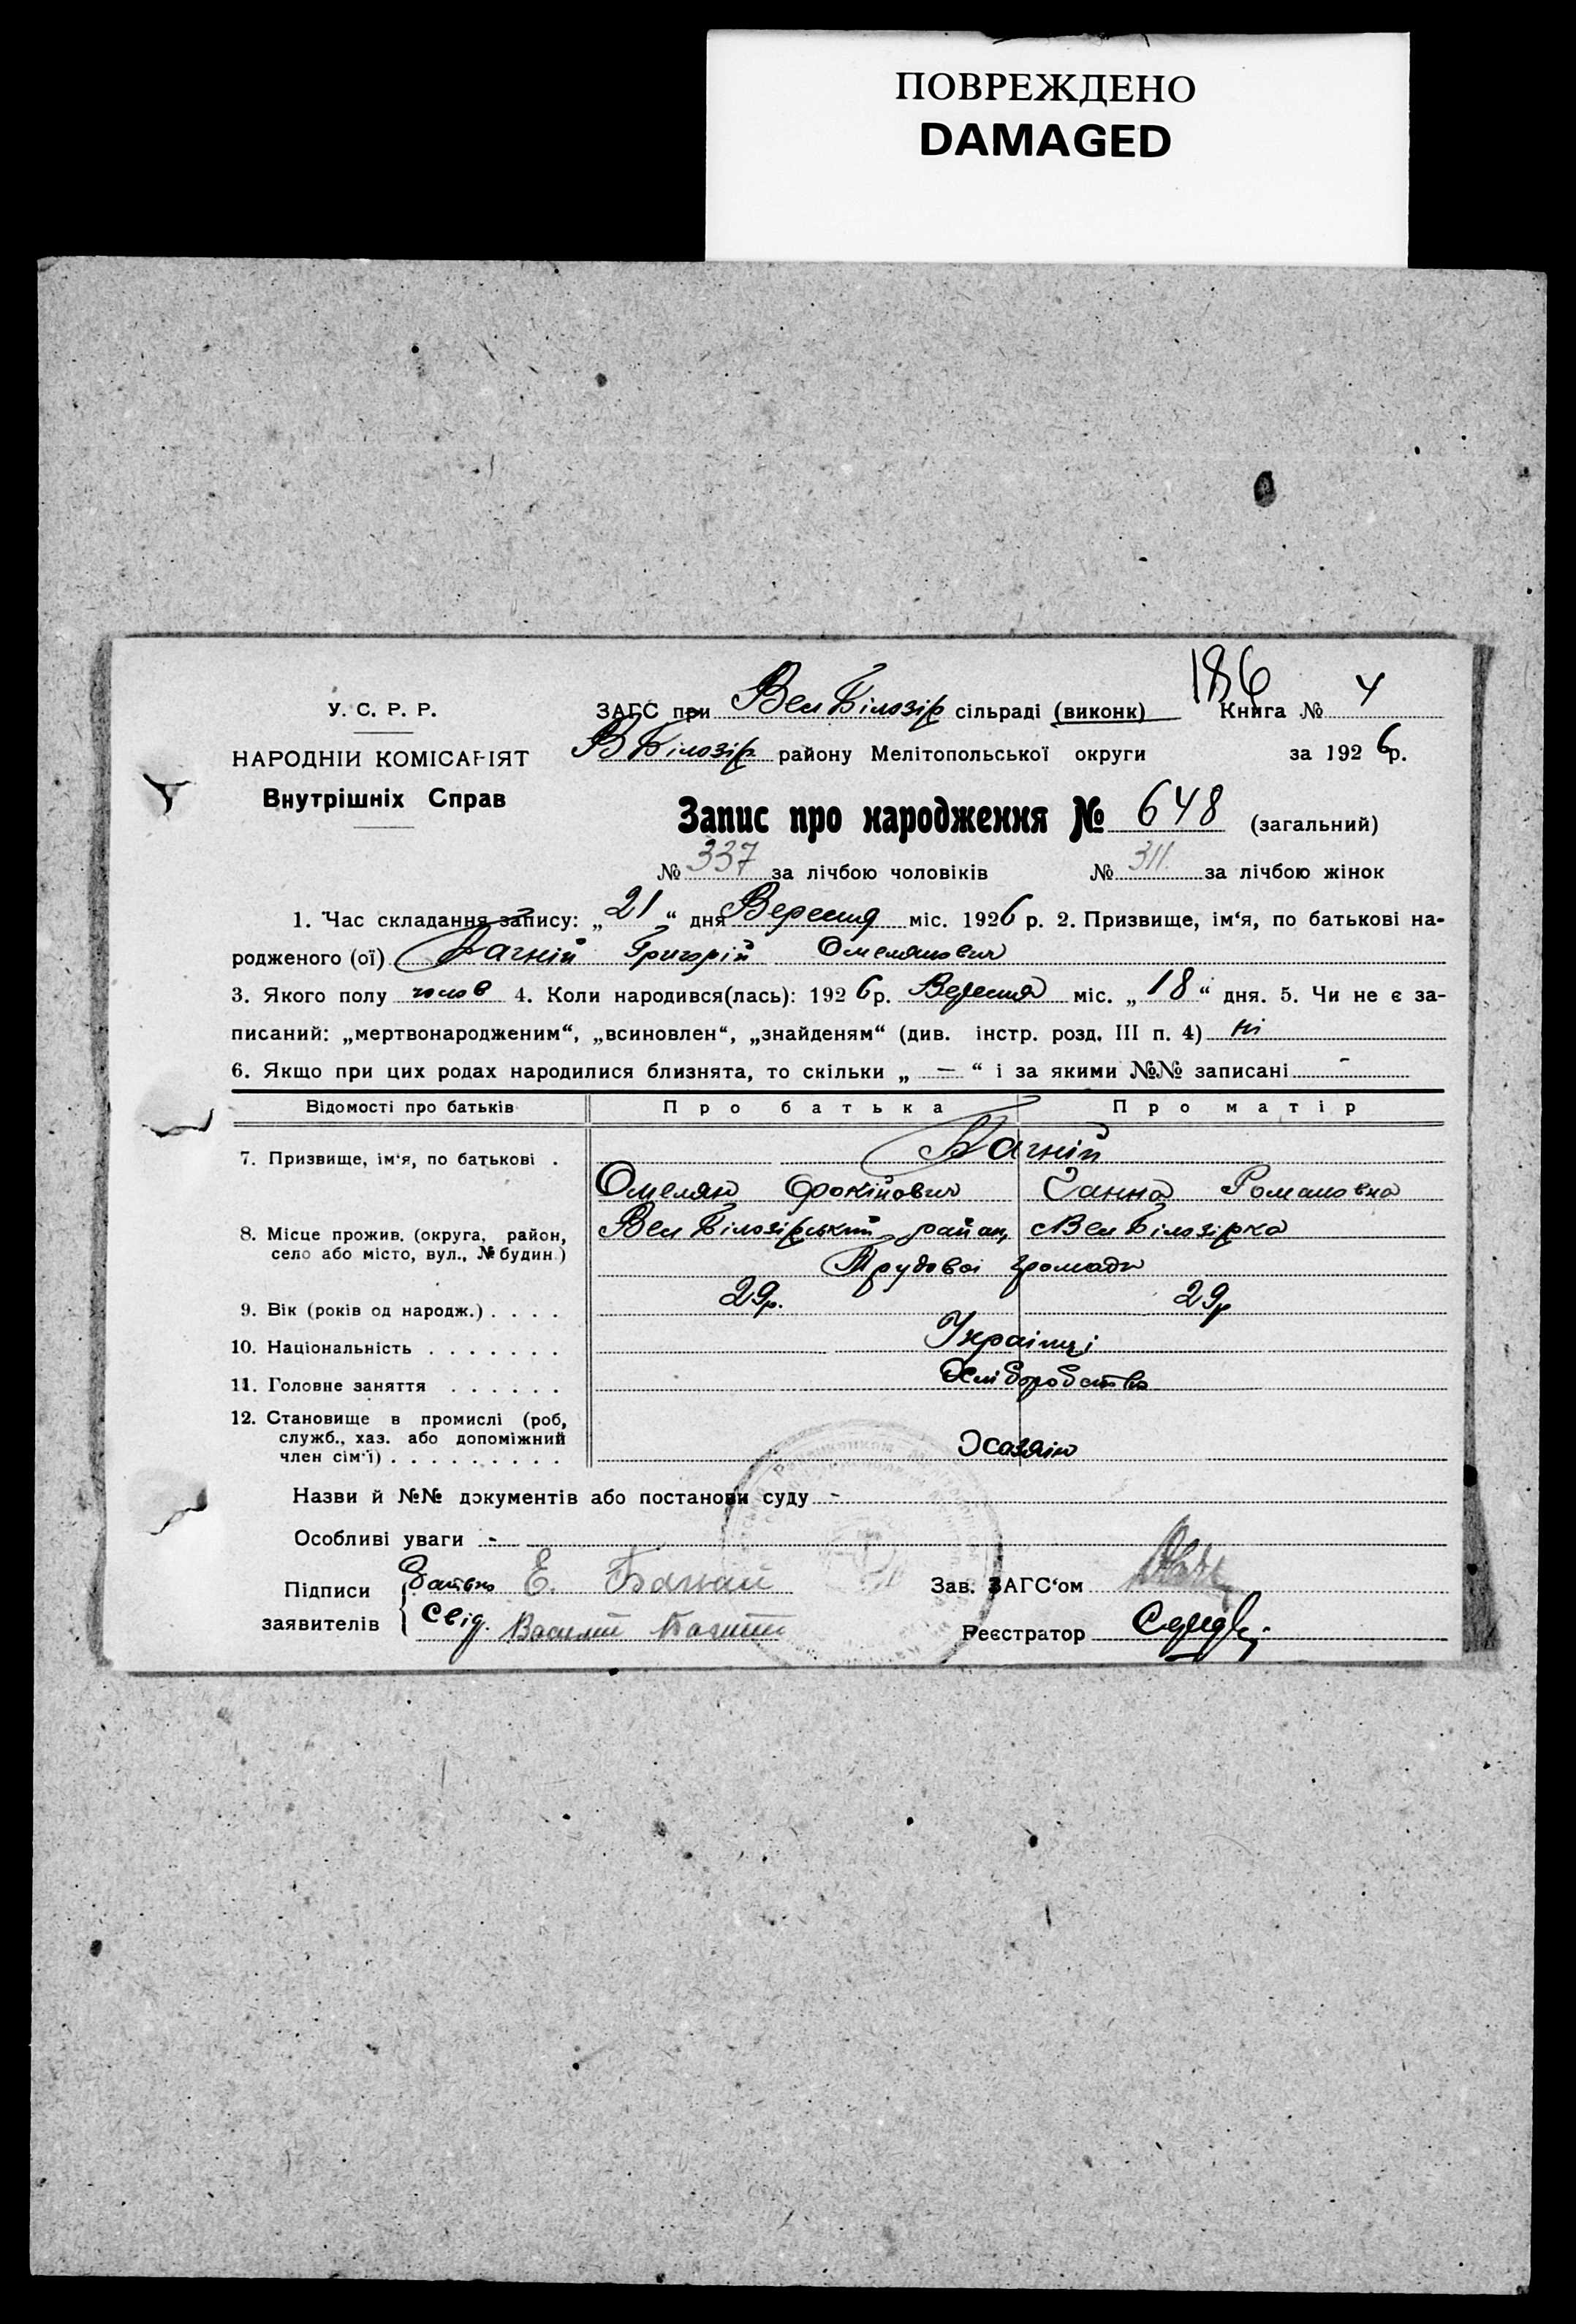 ПОВРЕЖДЕНО
DAMAGED
186
У. С. Р. Р.
ЗАГС при Вел Білозір сільраді (виконк) Книга № 4
НАРОДНІЙ КОМІСАРІЯТ
В Білозір району Мелітопольської округи за 1926 р.
Внутрішніх Справ
Запис про народження № 648 (загальний)
№ 337 за лічбою чоловіків № 311 за лічбою жінок
1. Час складання запису: „21“ дня Вересня міс. 1926 р. 2. Призвище, ім‘я, по батькові на-
родженого (ої) Багній Григорій Омелянович
3. Якого полу чолов 4. Коли народився(лась): 1926 р. Вересня міс. „18“ дня. 5. Чи не є за-
писаний: „мертвонародженим“, „всиновлен“, „знайденям“ (див. інстр. розд. III п. 4) ні
6. Якщо при цих родах народилися близнята, то скільки „ — “ і за якими №№ записані -
Відомості про батьків Про батька Про матір
7. Призвище, ім‘я, по батькові . Багній
Омелян Фокійович Ганна Романовна
8. Місце прожив. (округа, район, село або місто, вул., № будин.) Вел Білозірський район, Вел Білозірка
Трудової громади
9. Вік (років од народж.) . . . . 29р. 29р
10. Національність . . . . . . . Українці
11. Головне заняття . . . . . . Хліборобство
12. Становище в промислі (роб,
служб., хаз. або допоміжний
член сім‘ї) . . . . . . . . . Хазяїн
Назви й №№ документів або постанови суду -
Особливі уваги -
Підписи Батько Е. Багній Зав. ЗАГС‘ом
заявителів Свід. Василий Багний Реєстратор